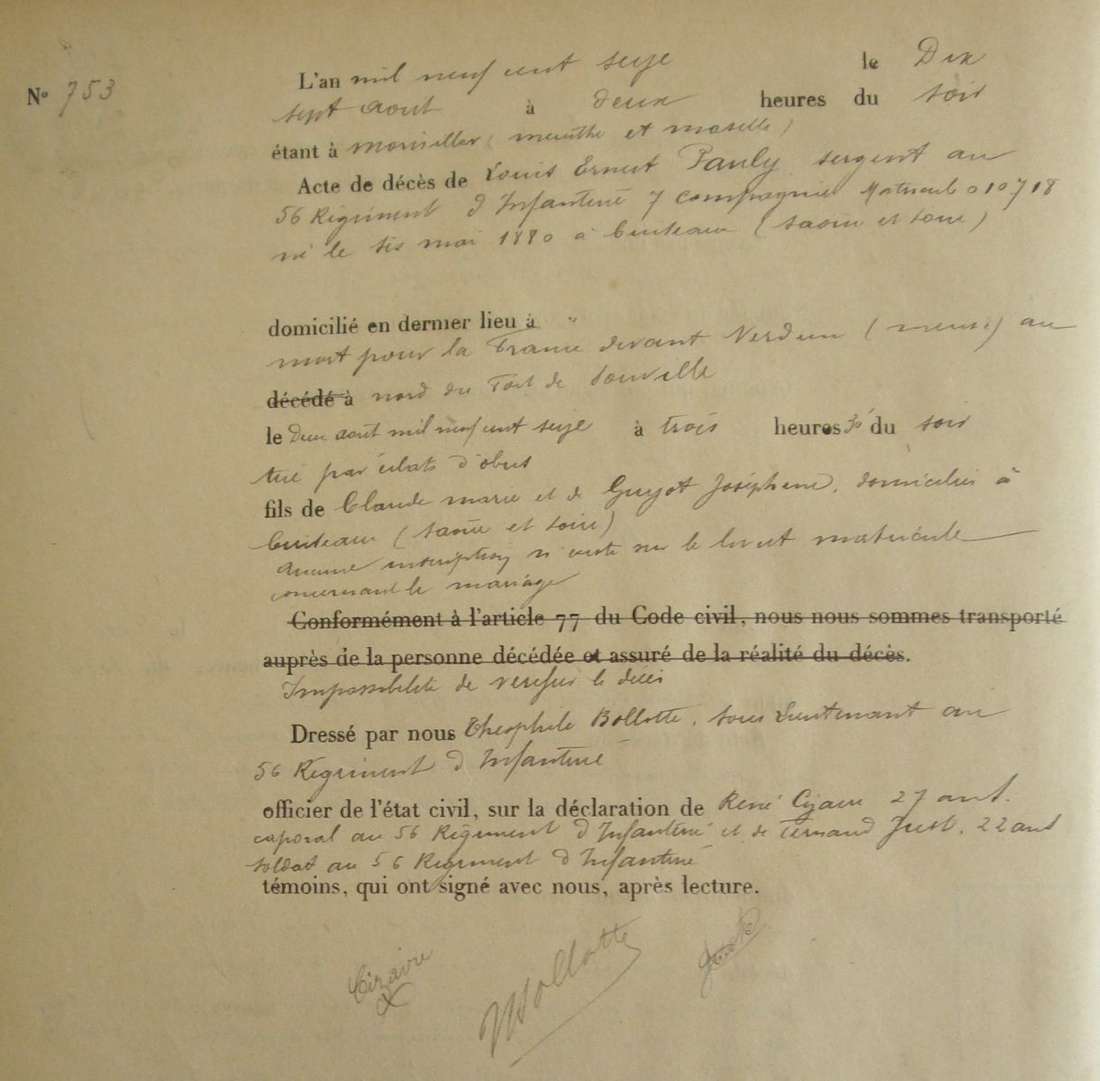 N° 753
L'an mil neuf cent seize le Dix
sept aout à deux heures du soir
étant à (meurthe et moselle)
Acte de décès de Louis Ernest Pauly sergent au
56 Régiment d'Infanterie 7 compagnie Matricule 010718
né le six mai 1880 à (saone et loire)
domicilié en dernier lieu à "
mort pour la France devant Verdun (meuse) au
décédé à nord du Fort de Souville
le Deux août mil neuf cent seize à trois heures 30 du soir
tué par éclats d'obus
fils de Claude marie et de Guyot Joséphine, domiciliés à
(saone et loire)
aucune inscription n'existe sur le livret matricule
concernant le mariage
Conformément à l'article 77 du Code civil, nous nous sommes transporté
auprès de la personne décédée et assuré de la réalité du décès.
Impossibilité de vérifier le décès
Dressé par nous Théophile Bollotte, sous Lieutenant au
56 Régiment d'Infanterie
officier de l'état civil, sur la déclaration de René 27 ans.
caporal au 56 Régiment d'Infanterie et de Fernand Just, 22 ans
soldat au 56 Régiment d'Infanterie
témoins, qui ont signé avec nous, après lecture.
Cizaire Bollotte Just